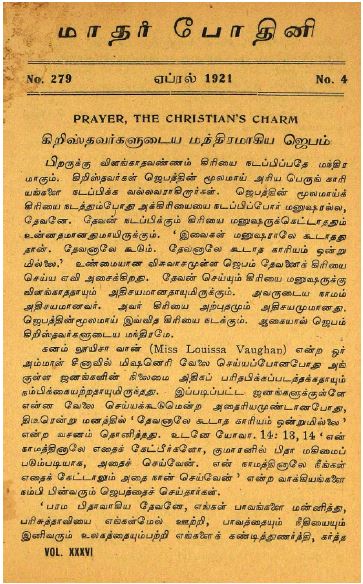 மாதர் போதினி
No. 279 ஏப்ரல் 1921 No. 4
PRAYER, THE CHRISTIAN'S CHARM
கிறிஸ்தவர்களுடைய மந்திரமாகிய ஜெபம்
பிறருக்கு விளங்காதவண்ணம் கிரியை நடப்பிப்பதே மந்திர
மாகும். கிறிஸ்தவர்கள் ஜெபத்தின் மூலமாய் அரிய பெருங் காரி
யங்களை நடப்பிக்க வல்லவராகிறார்கள். ஜெபத்தின் மூலமாய்க்
கிரியை நடத்தும்போது அக்கிரியையை நடப்பிப்போர் மனுஷரல்ல,
தேவனே. தேவன் நடப்பிக்கும் கிரியை மனுஷருக்கெட்டாததும்
உன்னதமானதுமாயிருக்கும். ' இவைகள் மனுஷராலே கூடாதது
தான். தேவனாலே கூடும். தேவனாலே கூடாத காரியம் ஒன்று
மில்லை.' உண்மையான விசுவாசமுள்ள ஜெபம் தேவனைக் கிரியை
செய்ய ஏவி அசைக்கிறது. தேவன் செய்யும் கிரியை மனுஷருக்கு
விளங்காததாயும் அதிசயமானதாயுமிருக்கும். அவருடைய நாமம்
அதிசயமானவர். அவர் கிரியை அற்புதமும் அதிசயமுமானது.
ஜெபத்தின்மூலமாய் இவ்வித கிரியை நடக்கும். ஆகையால் ஜெபம்
கிறிஸ்தவர்களுடைய மந்திரமே.
கனம் லூயிசா வான் (Miss Louissa Vaughan) என்ற ஓர்
அம்மாள் சீனாவில் மிஷனெரி வேலை செய்யப்போனபோது அங்
குள்ள ஜனங்களின் நிலைமை அதிகப் பரிதபிக்கப்படத்தக்கதாயும்
நம்பிக்கையற்றதாயுமிருந்தது. இப்படிப்பட்ட ஜனங்களுக்குள்ளே
என்ன வேலை செய்யக்கூடுமென்ற அதைரியமுண்டானபோது,
திடீரென்று மனத்தில் ' தேவனாலே கூடாத காரியம் ஒன்றுமில்லை '
என்ற வசனம் தொனித்தது. உடனே யோவா. 14: 13, 14 ' என்
நாமத்தினாலே எதைக் கேட்பீர்களோ, குமாரனில் பிதா மகிமைப்
படும்படியாக, அதைச் செய்வேன். என் நாமத்தினாலே நீங்கள்
எதைக் கேட்டாலும் அதை நான் செய்வேன் ' என்ற வாக்கியங்களை
நம்பி பின்வரும் ஜெபத்தைச் செய்தார்கள்.
' பரம பிதாவாகிய தேவனே, எங்கள் பாவங்களை மன்னித்து,
பரிசுத்தாவியை எங்கள்மேல் ஊற்றி, பாவத்தையும் நீதியையும்
இனிவரும் உலகத்தையும்பற்றி எங்களைக் கண்டித்துணர்த்தி, கர்த்த
VOL. XXXVI